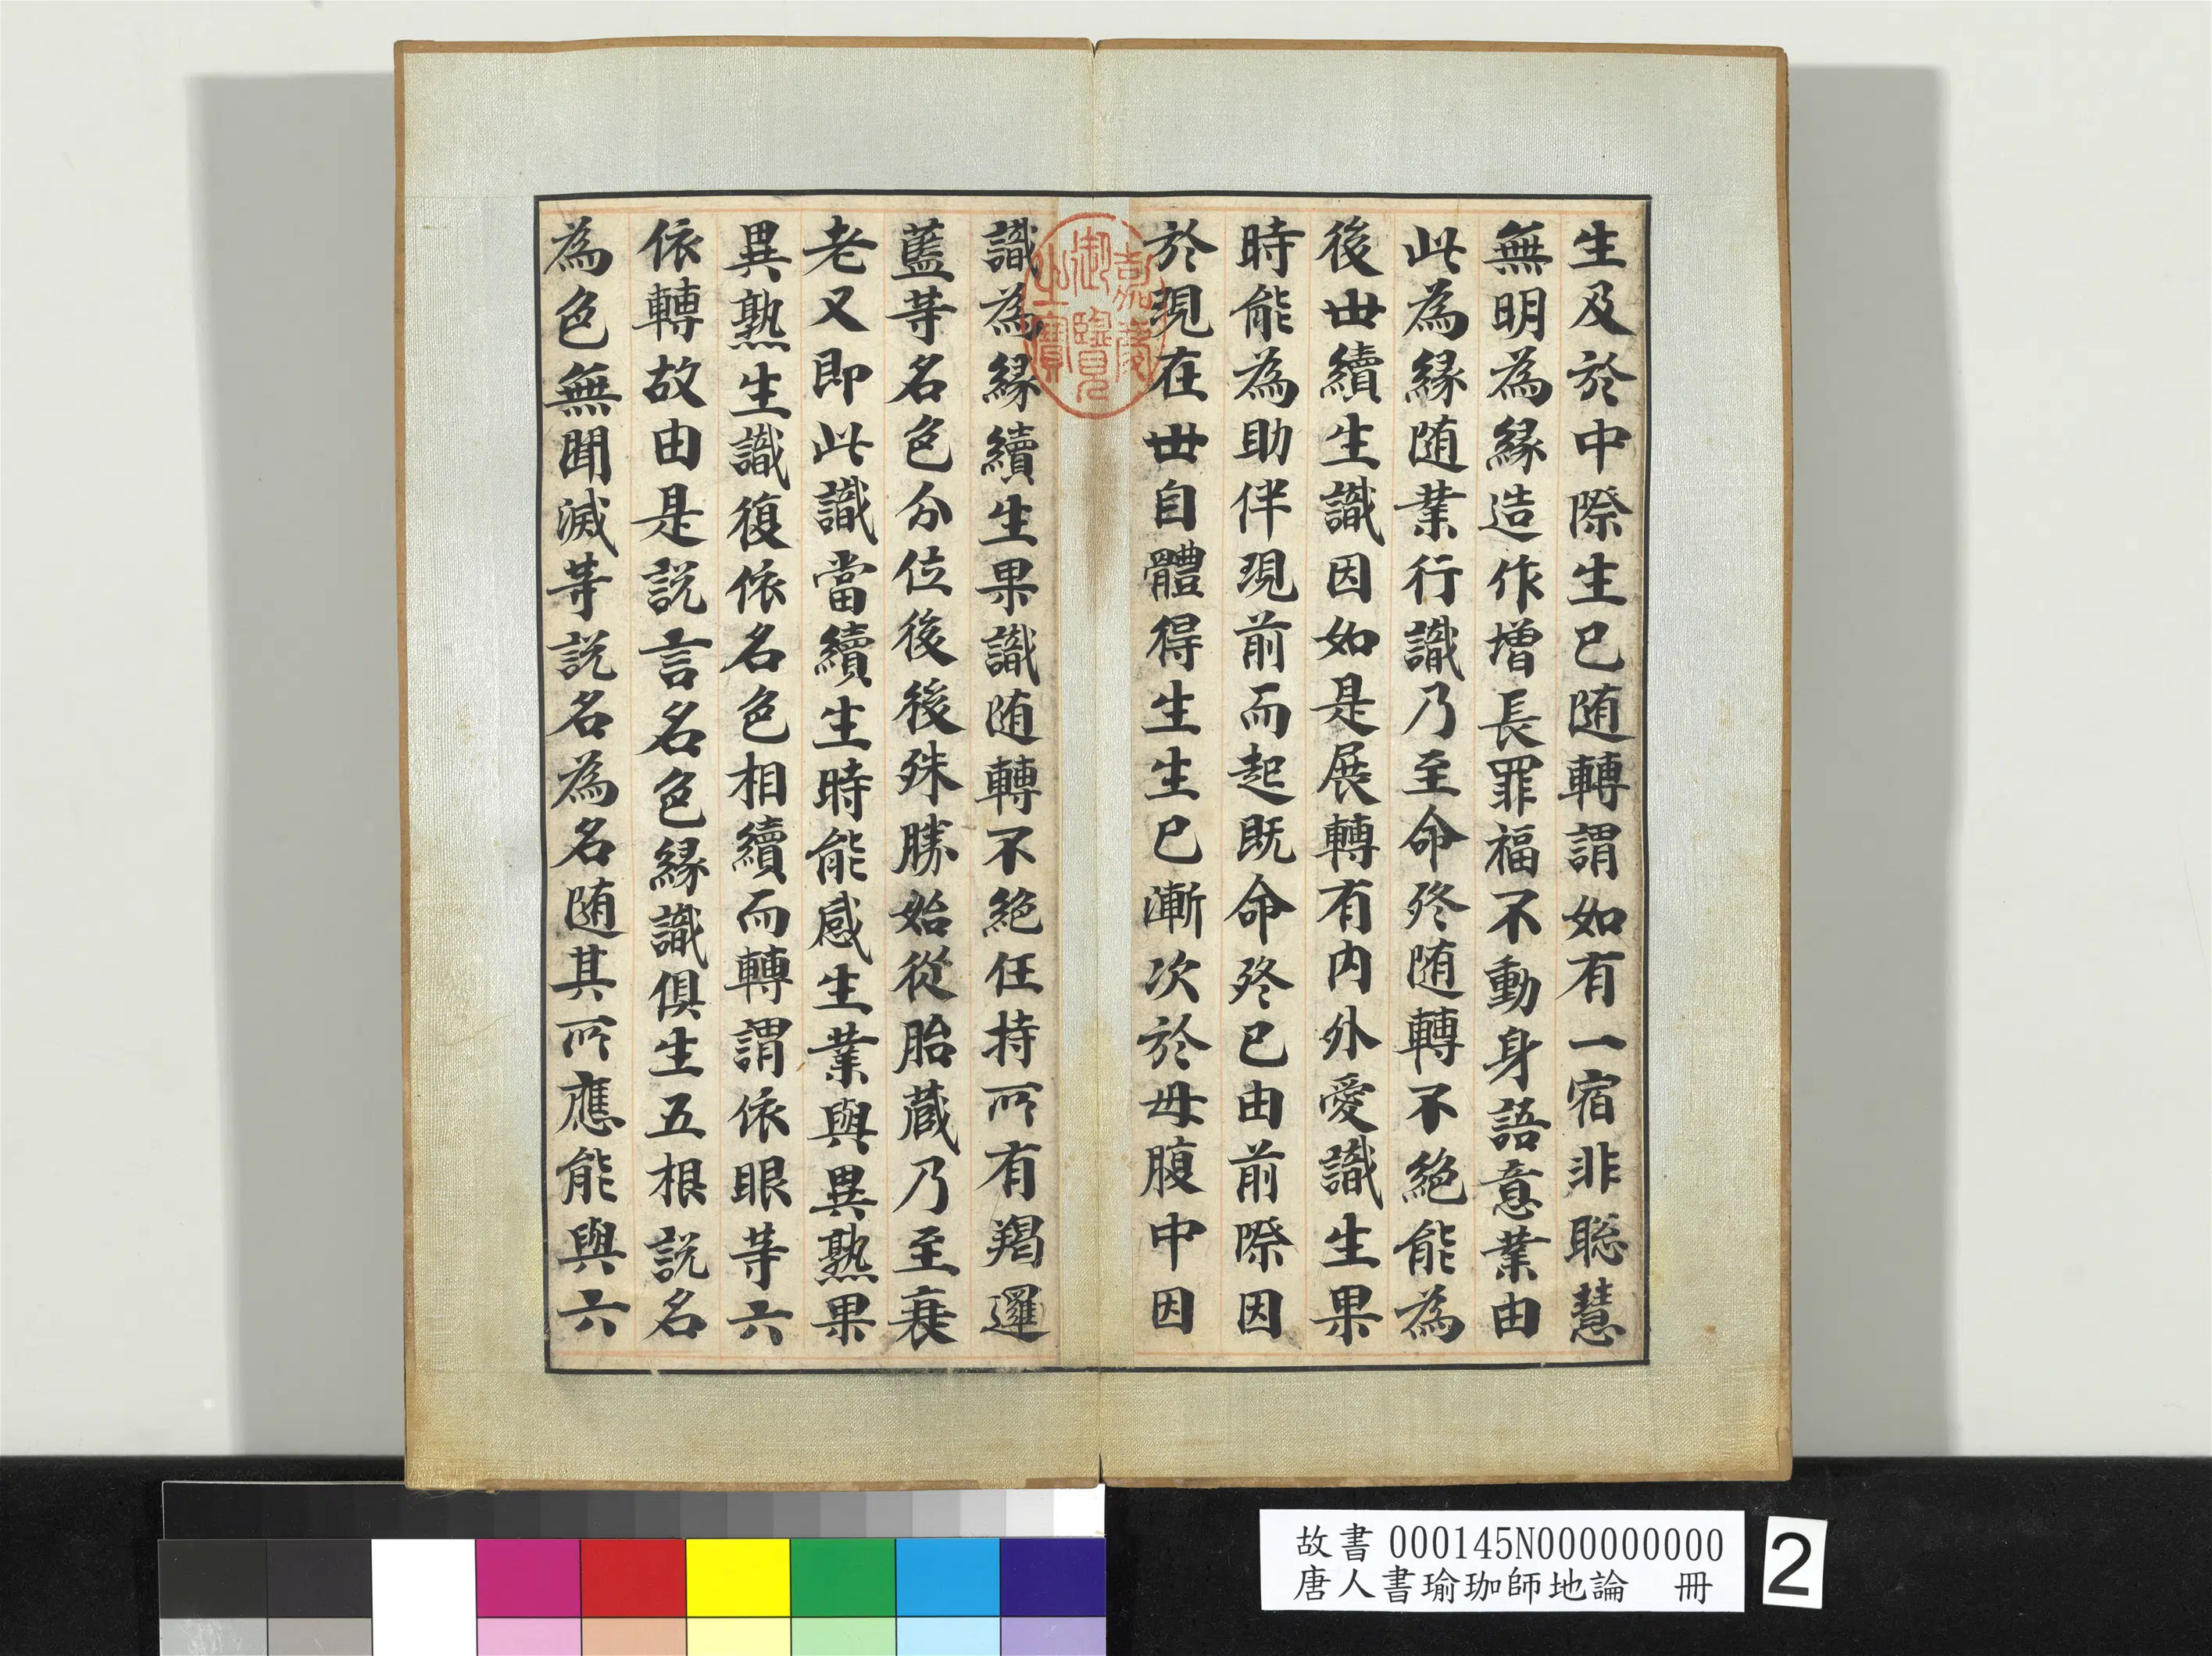 生及於中際生已随轉謂如有一宿非聡慧
無明為縁造作增長罪福不動身語意業由
此為縁随業行識乃至命終随轉不絶能為
後世續生識因如是展轉有内外愛識生果
時能為助伴現前而起既命終已由前際因
於現在世自體得生生已漸次於母腹中因
識為縁續生果識随轉不絶任持所有羯邏
藍等名色分位後後殊勝始從胎蔵乃至衰
老又即此識當續生時能感生業與異熟果
異熟生識復依名色相續而轉謂依眼等六
依轉故由是説言名色縁識俱生五根説名
為色無間滅等説名為名随其所應能與六
嘉慶
御覽
之寶
故書 000145N000000000
唐人書瑜珈師地論 冊
2